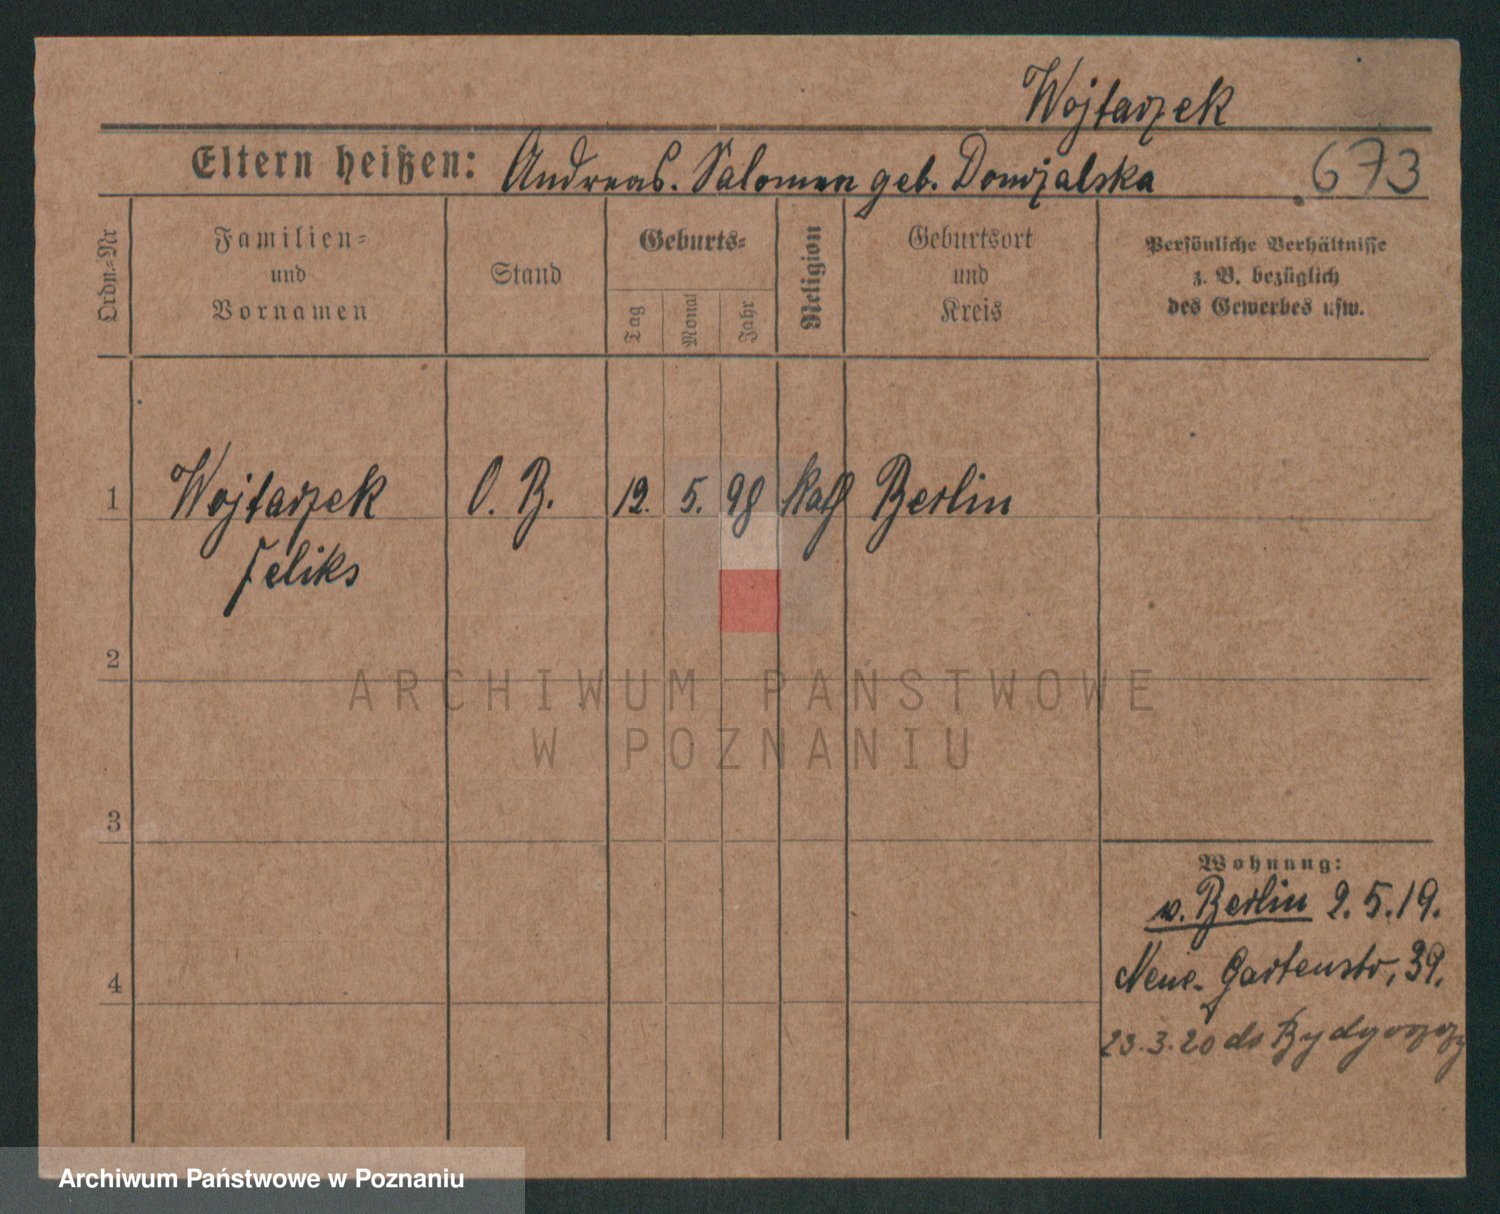 Wojtarzek
Eltern heißen: Andreas. Salomea geb. Dowjalska
673
Ordn.-Nr
Familien-
und
Vornamen
Stand
Geburts-
Tag
Monat
Jahr
Religion
Geburtsort
und
Kreis
Persönliche Verhältnisse
z. B. bezüglich
des Gewerbes usw.
1 Wojtarzek O. B. 12. 5. 98 Kath Berlin
Feliks
2
ARCHIWUM PAŃSTWOWE
W POZNANIU
3
Wohnung:
v. Berlin 2.5.19.
4
Neue Gartenstr, 39.
23.3.20 do Bydgoszczy
Archiwum Państwowe w Poznaniu